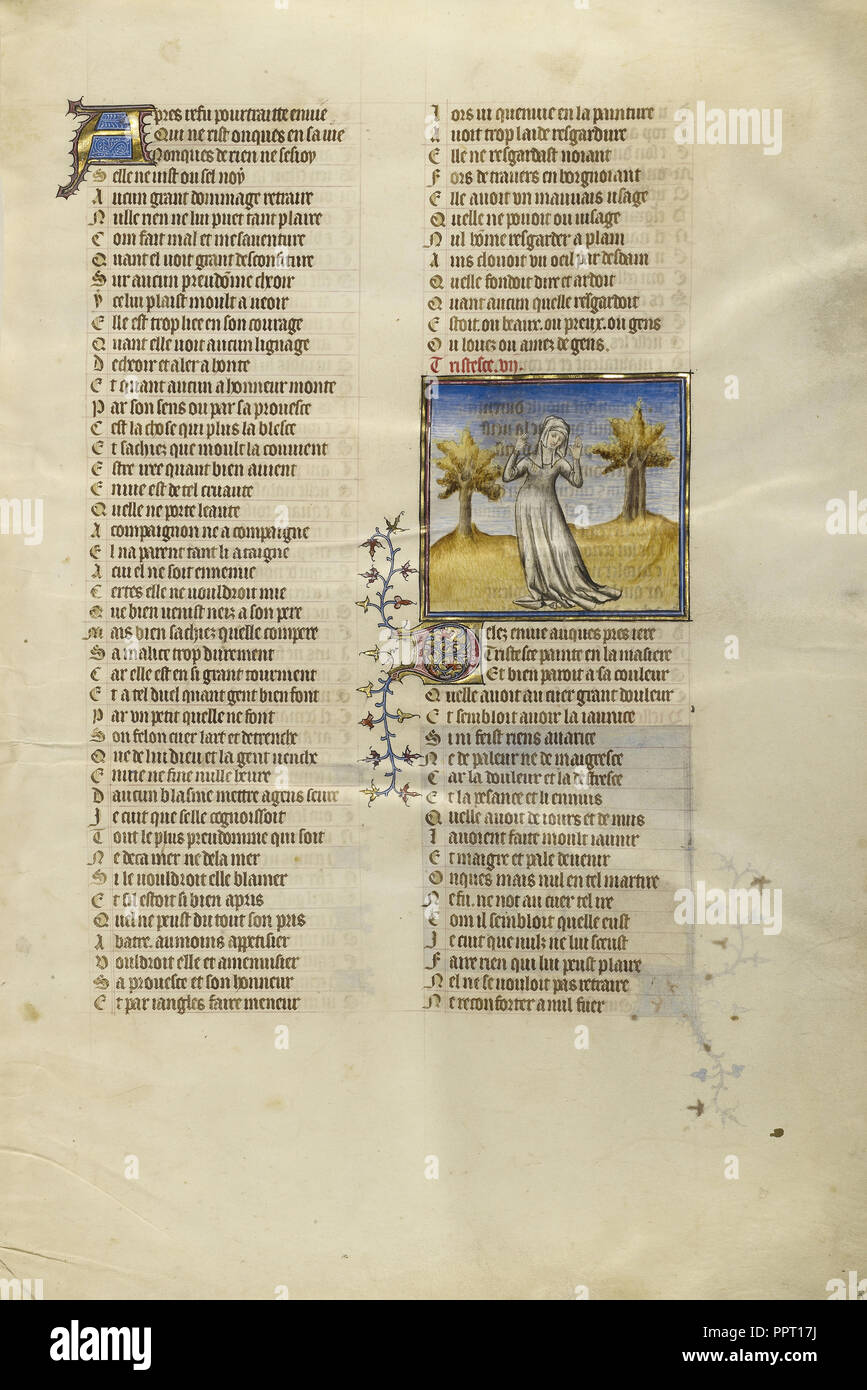 Apres refu pourtraitte envie
Qui ne rist onques en sa vie
Nonques de rien ne sesioy
Selle ne vist ou sel noy
Aucun grant dommage retraire
Nulle rien ne lui puet tant plaire
Com fait mal et mesaventure
Quant el voit grant desconfiture
Sur aucun preudome cheoir
Y celui plaist moult a veoir
Elle est trop liee en son courage
Quant elle voit aucun lignage
Decheoir et aler a honte
Et quant aucun a honneur monte
Par son sens ou par sa prouesce
Cest la chose qui plus la blesce
Et sachiez que moult la convient
Estre iree quant bien avient
Envie est de tel cruaute
Quelle ne porte leaute
A compaignon ne a compaigne
El na parent tant li ataigne
A cui el ne soit ennemie
Certes elle ne vouldroit mie
Que bien venist neiz a son pere
Mais bien sachiez quelle compere
Sa malice trop durement
Car elle est en si grant tourment
Et a tel duel quant gent bien font
Par un petit quelle ne font
Son felon cuer lart et detrenche
Que de lui dieu et la gent venche
Envie ne fine nulle heure
Daucun blasme mettre a gens seure
Je cuit que selle cognoissoit
Tout le plus preudomme qui soit
Ne deca mer ne dela mer
Si le vouldroit elle blamer
Et sil estoit si bien apris
Quil ne peust du tout son pris
Abatre. au moins appetisier
Vouldroit elle et amenuisier
Sa prouesce et son honneur
Et par iangles faire meneur
Lors vi quenvie en la painture
Avoit trop laide resgardure
Elle ne resgardast noiant
Fors de travers en borgnoiant
Elle avoit un mauvais usage
Quelle ne povoit ou visage
Nul home resgarder a plain
Ains clouoit un oeil par desdain
Quelle fondoit dire et ardoit
Quant aucun quelle resgardoit
Estoit. ou beaux. ou preux. ou gens
Ou louez ou amez de gens.
Tristesce. vii.
Delez envie auques pres iere
Tristesce painte en la masiere
Et bien paroit a sa couleur
Quelle avoit au cuer grant douleur
Et sembloit avoir la iaunice
Si ni feist riens avarice
Ne de paleur ne de maigresce
Car la douleur et la destresce
Et la pesance et li ennuis
Quelle avoit de iours et de nuis
Lavoient faite moult iaunir
Et maigre et pale devenir
Onques mais nul en tel martire
Ne fu. ne not au cuer tel ire
Com il sembloit quelle eust
Je cuit que nulz ne lui sceust
Faire rien qui lui peust plaire
Nel ne se vouloit pas retraire
Ne reconforter a nul fuer
alamy
Image ID: PPT17J
www.alamy.com